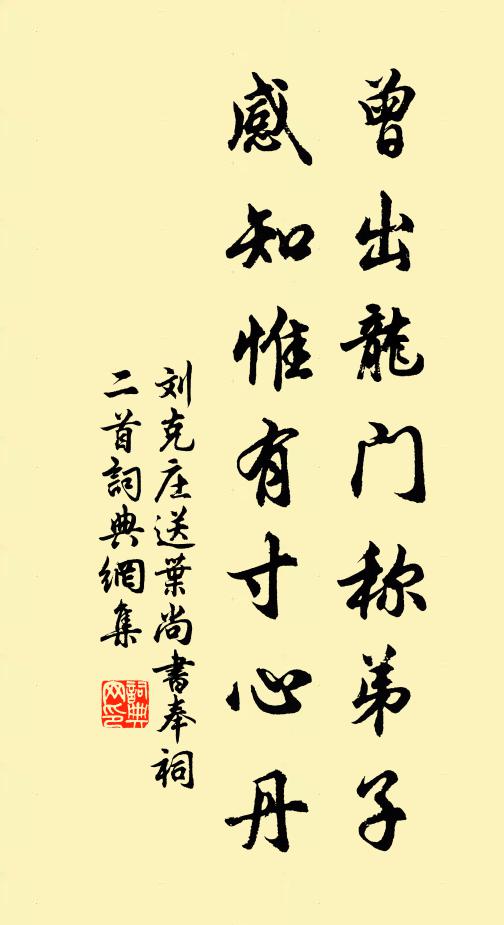 曾出龍门称弟子
感知惟有寸心丹
刘克庄送葉尚書奉祠
二首詞典網集
詞典
网印